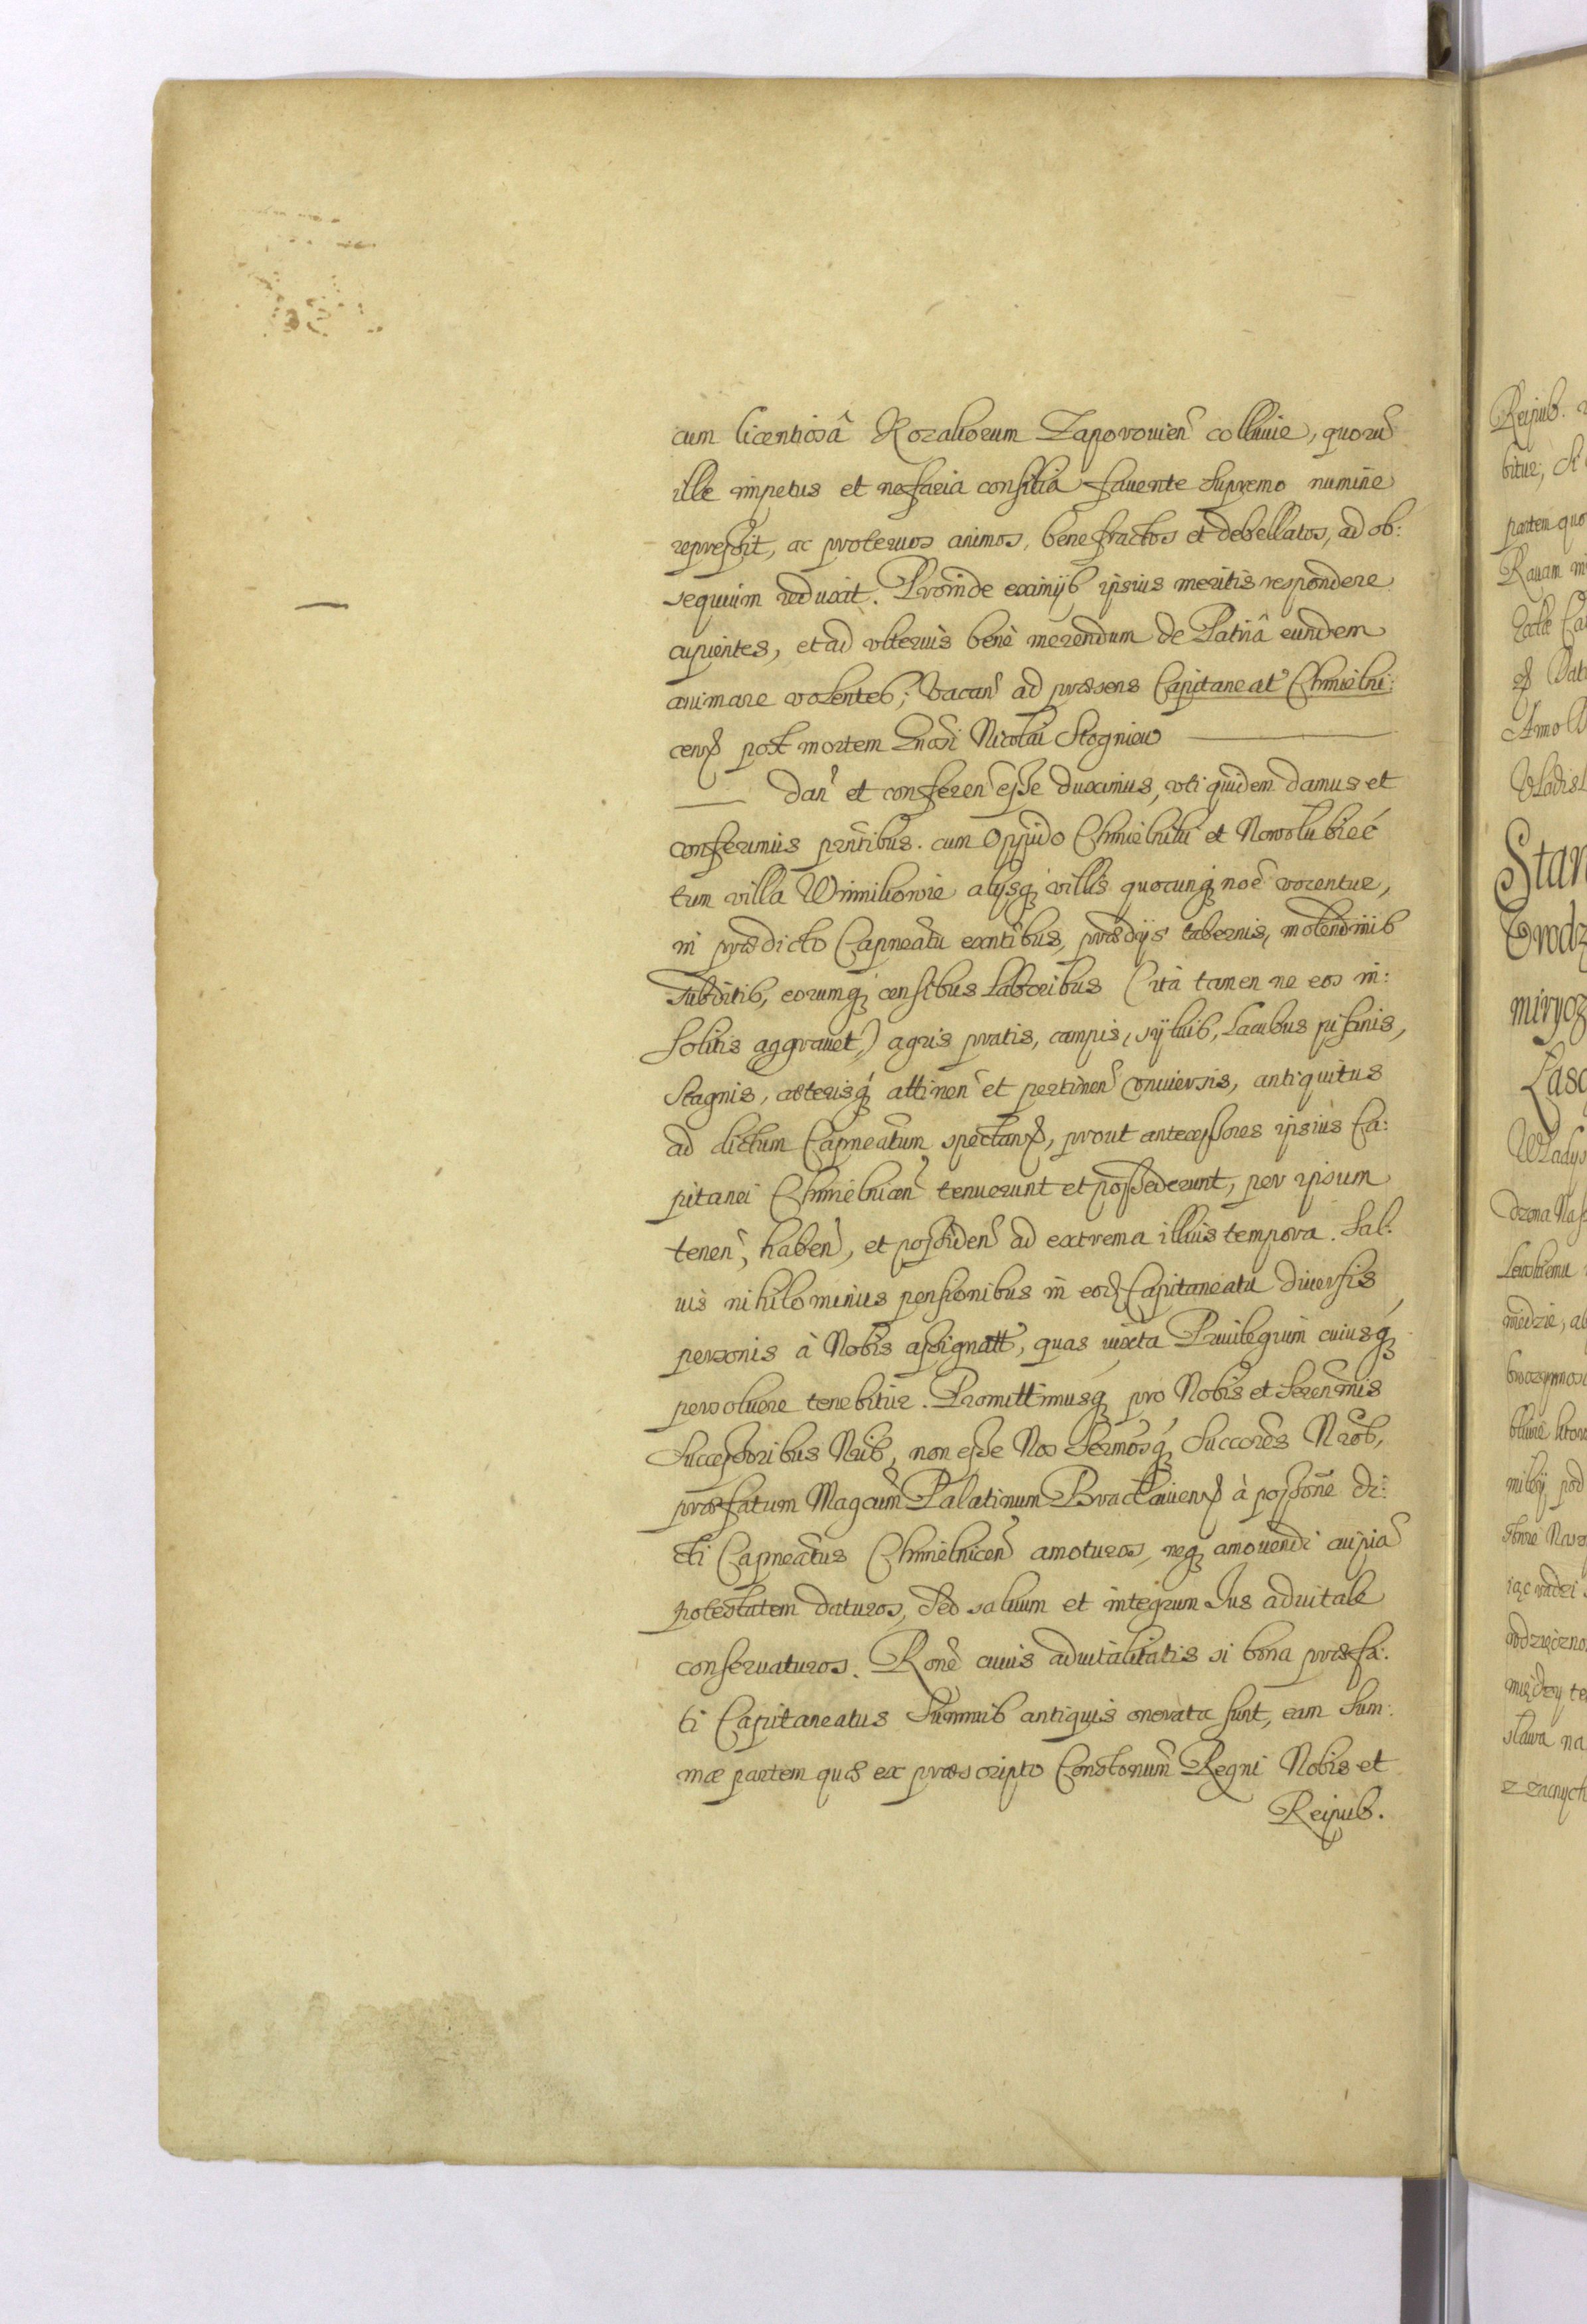 cum licentiosâ Kozakorum Zaporouien̄ colluuie, quorū
ille impetus et nefaria consilia fauente supremo numine
repressit, ac proteruos animos, bene fractos et debellatos, ad ob:
sequium reduxit. Proinde eximijs ipsius meritis respondere
cupientes, et ad vlterius benè merendum de Patriâ eundem
animare volentes; Vacan̄ ad præsens Capitaneat Chmielni:
cens post mortem Gnōsi Nicolai Stogniew
dan̄ et conferen̄ esse duximus, vti quidem damus et
conferimus prn̄tibus. cum Oppido Chmielniki et
tum villa Winnikowie alijsq; villis quocunq; noē vocentur,
in prædicto Capneātu exn̄tibus, prædijs tabernis, molendinis
Subditis, eorumq; censibus laboribus (ita tamen ne eos in:
solitis aggrauet) agris pratis, campis, syluis, lacubus piscinis,
Stagnis, cæterisq; attinen̄ et pertinen̄ vniuersis, antiquitus
ad dictum Capneātum spectans, prout antecessores ipsius Ca:
pitanei Chmielnicen̄ tenuerunt et possederunt, per ipsum
tenen̄, haben̄, et possiden̄ ad extrema illius tempora. Sal:
uis nihilominus pensionibus in eod Capitaneatu diuersis
personis à Nobis assignatt, quas iuxta Priuilegium cuiusq;
persoluere tenebitur. Promittimusq; pro Nobis et Seren̄mis
Successoribus Nrīs, non esse Nos Sermōsq; Succorēs Nrōs,
præfatum Magcūm Palatinum Bracłauiens à possōne di:
cti Capneātus Chmielnicen̄ amoturos, neq; amouendi cuipiā
potestatem daturos, sed saluum et integrum Ius aduitale
conseruaturos. Ronē cuius aduitalitatis si bona præfa:
ti Capitaneatus Summis antiquis onerata sunt, eam Sum:
mæ partem quæ ex præscripto Constonum̄ Regni Nobis et
Reipub.
Reipub.
bitur, si
partem quo
Rauam m
Dat
Anno
Vladisl
Stan
Brodz
mirycz
Lasc
Wladys
miedzie, al
między te
sława na
z zacnych